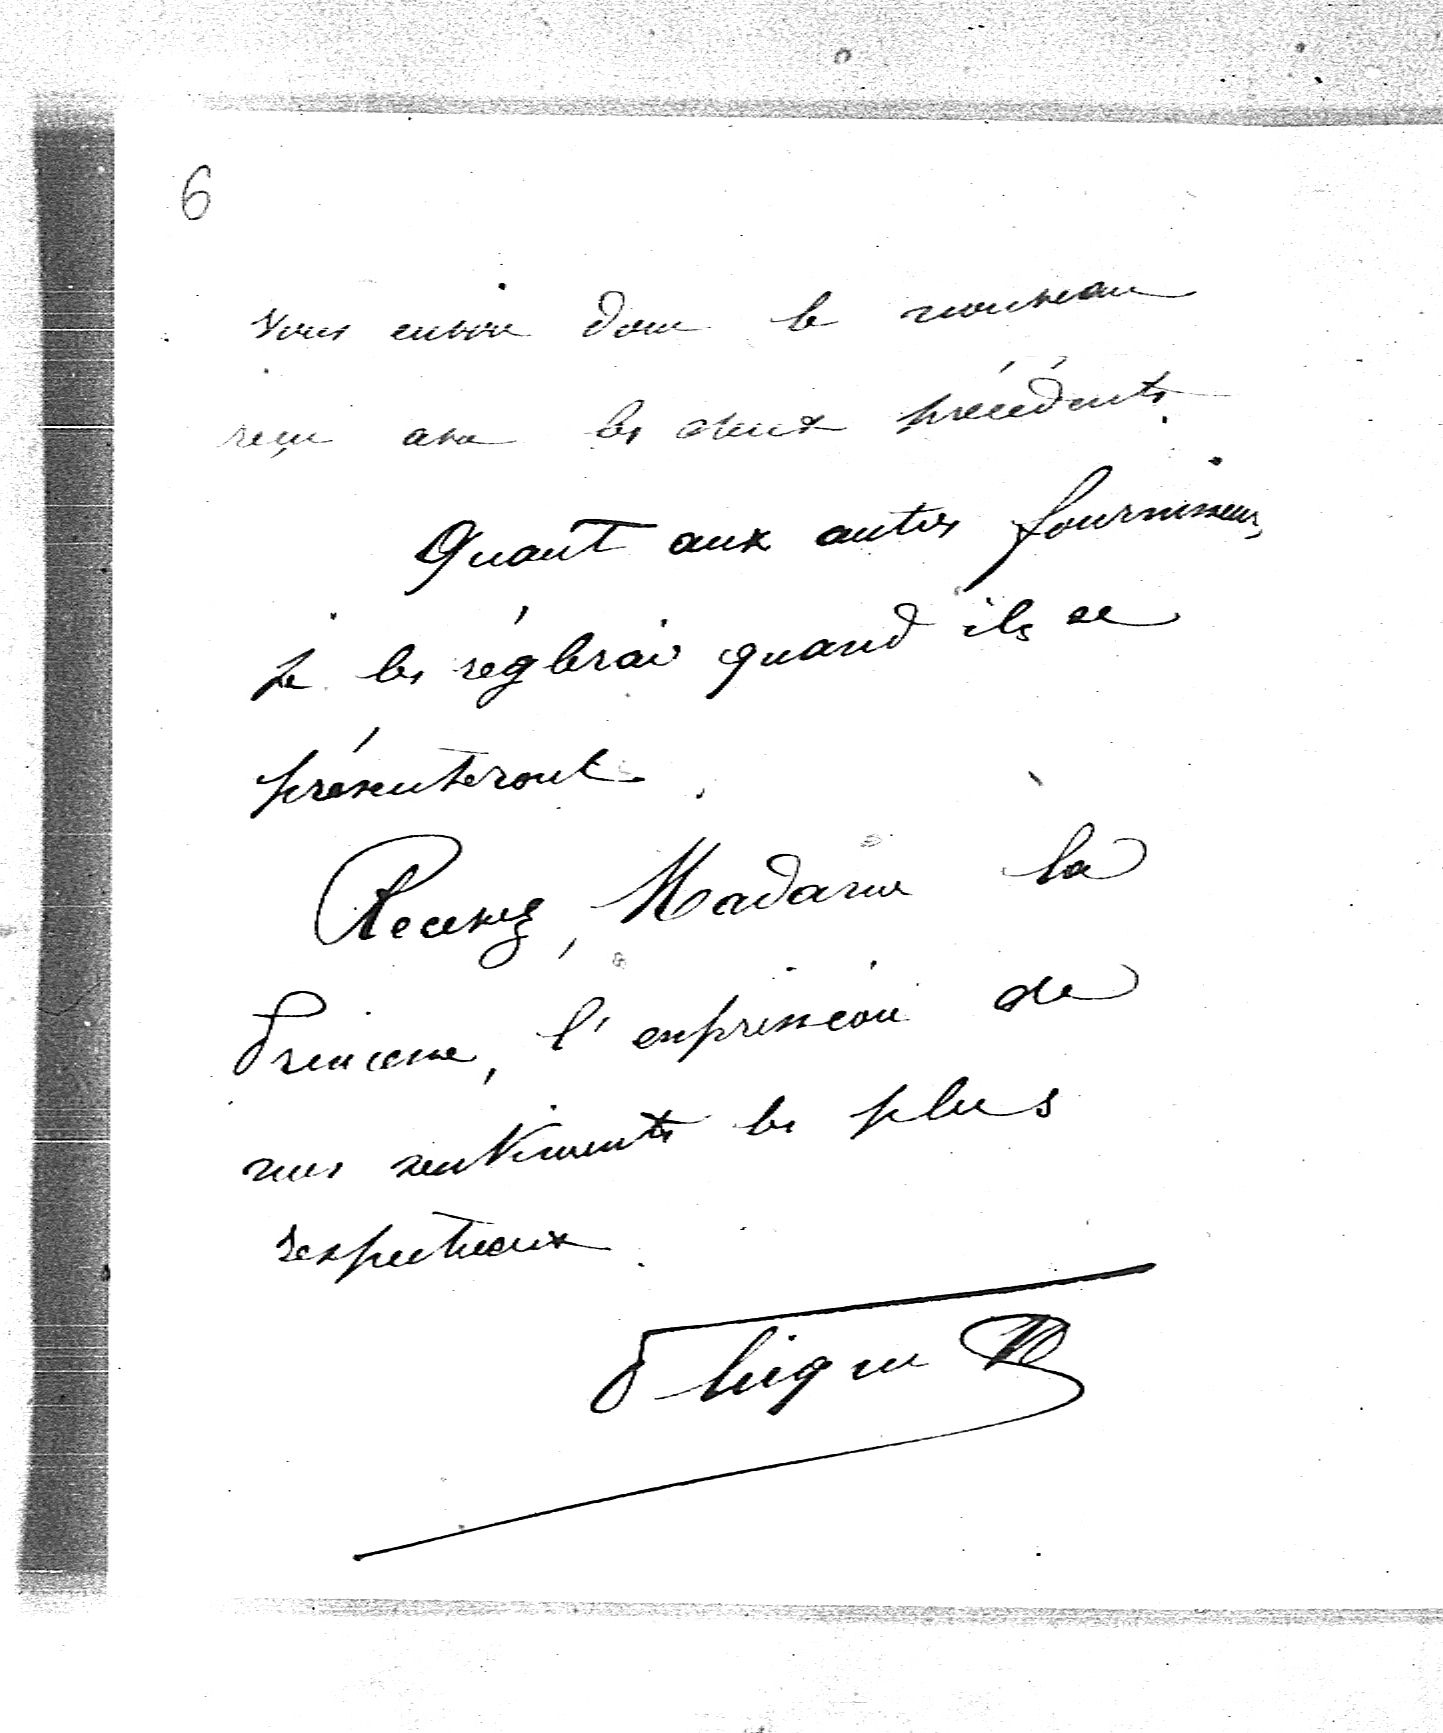 6
vous envoie donc le nouveau
reçu avec les deux précédents.
Quant aux autres fournisseurs,
je les réglerai quand ils se
présenteront.
Recevez, Madame la
Princesse, l'expression de
mes sentiments les plus
respectueux.